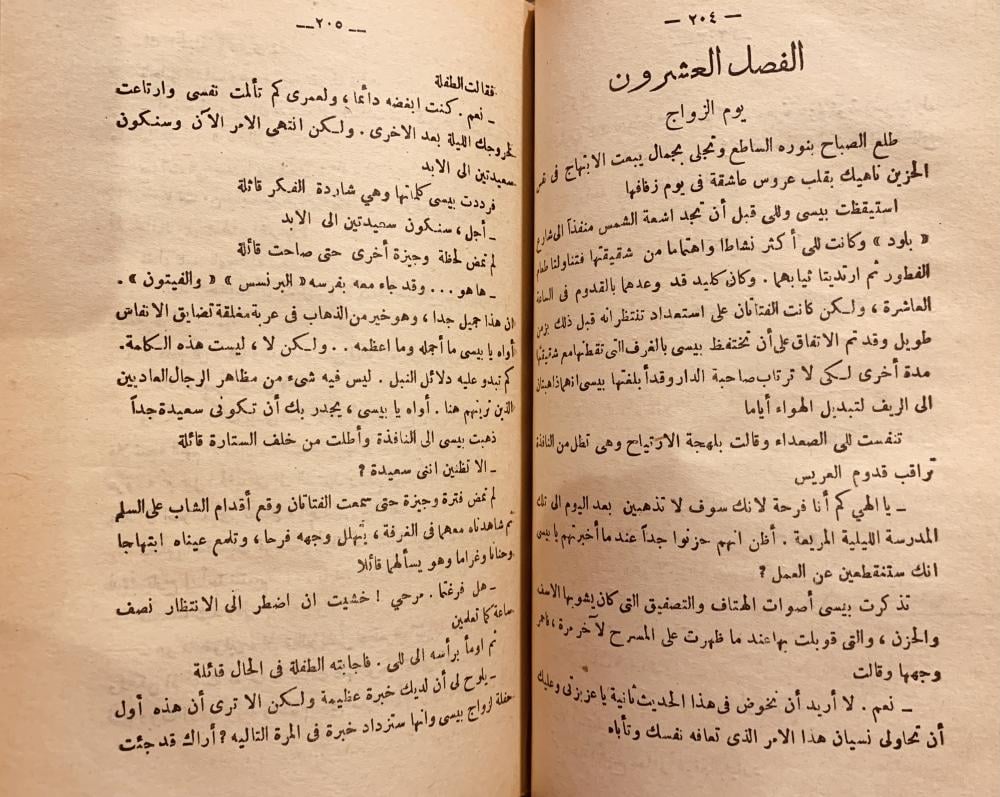 — ٢٠٤ —
الفصل العشرون
يوم الزواج
طلع الصباح بنوره الساطع وتجلى بجمال يبعث الابتهاج فى نفس
الحزين ناهيك بقلب عروس عاشقة فى يوم زفافها
استيقظت بيسى وللى قبل أن تجد اشعة الشمس منفذاً الى شارع
« باود » وكانت للى أكثر نشاطا واهتماما من شقيقتها فتناولتا طعام
الفطور ثم ارتديتا ثيابهما . وكان كليد قد وعدهما بالقدوم فى الساعة
العاشرة ، ولـكن كانت الفتاتان على استعداد تنتظرانه قبل ذلك بزمن
طويل وقد تم الاتفاق على أن تحتفظ بيسى بالغرف التى تقطنها مع شقيقتها
مدة أخرى لـكى لا ترتاب صاحبة الدار وقد أبلغتها بيسى انهما ذاهبتان
الى الريف لتبديل الهواء أياما
تنفست للى الصعداء وقالت بلهجة الارتياح وهى تطل من النافذة
تراقب قدوم العريس
ـ يا الهي كم أنا فرحة لانك سوف لا تذهبين بعد اليوم الى تلك
المدرسة الليلية المريعة . أظن انهم حزنوا جداً عند ما أخبرتهم يا بيسى
انك ستنقطعين عن العمل ?
تذكرت بيسى أصوات الهتاف والتصفيق التى كان يشوبها الاسف
والحزن ، والتى قوبلت بها عند ما ظهرت على المسرح لآخر مرة ، فاحمر
وجهها وقالت
ـ نعم . لا أريد أن نخوض فى هذا الحديث ثانية يا عزيزتى وعليك
أن تحاولى نسيان هذا الامر الذى تعافه نفسك وتأباه
— ٢٠٥ —
فقالت الطفلة
ـ نعم . كنت ابغضه دائما ، ولعمرى كم تألمت نفسى وارتاعت
لخروجك الليلة بعد الاخرى . ولـكن انتهى الامر الآن وسنـكون
سعيدتين الى الابد
فرددت بيسى كلماتها وهي شاردة الفـكر قائلة
ـ أجل ، سنـكون سعيدتين الى الابد
لم تمض لحظة وجيزة أخرى حتى صاحت قائلة
ـ ها هو ... وقد جاء معه بفرسه « البرنسس » « والفيتون » .
ان هذا جميل جدا ، وهو خير من الذهاب فى عربة مغلقة تضايق الانفاس
أواه يا بيسى ما أجمله وما اعظمه . . ولـكن لا ، ليست هذه الـكلمة.
كم تبدو عليه دلائل النبل . ليس فيه شىء من مظاهر الرجال العاديين
الذين نرينهم هنا . أواه يا بيسى ، يجدر بك أن تـكونى سعيدة جداً
ذهبت بيسى الى النافذة وأطلت من خلف الستارة قائلة
ـ الا تظنين اننى سعيدة ?
لم تمض فترة وجيزة حتى سمعت الفتاتان وقع أقدام الشاب على السلم
ثم شاهدتاه معهما فى الغرفة ، يتهلل وجهه فرحا ، وتلمع عيناه ابتهاجا
وحنانا وغراما وهو يسألهما قائلا
ـ هل فرغتما . مرحي ! خشيت ان اضطر الى الانتظار نصف
ساعة كما تعلمين
ثم اومأ برأسه الى للى . فاجابته الطفلة فى الحال قائلة
ـ يلوح لى أن لديك خبرة عظيمة ولـكن الا ترى أن هذه أول
حفلة لزواج بيسى وانها ستزداد خبرة فى المرة التاليه ? أراك قد جئت